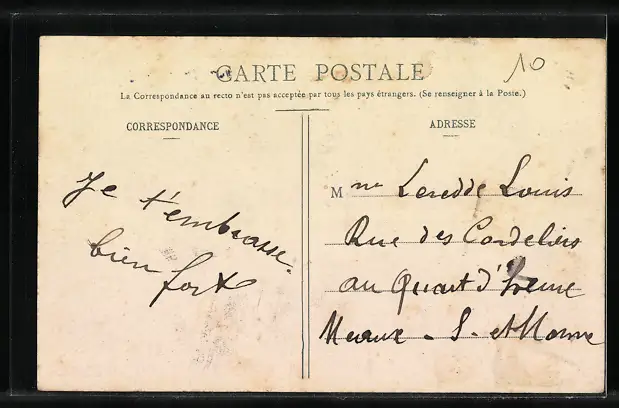 10
CARTE POSTALE
La Correspondance au recto n'est pas acceptée par tous les pays étrangers. (Se renseigner à la Poste.)
CORRESPONDANCE
ADRESSE
Je t'embrasse
bien fort
Mme Louis
Rue des Cordeliers
au Quart d'
Meaux - S. et Marne